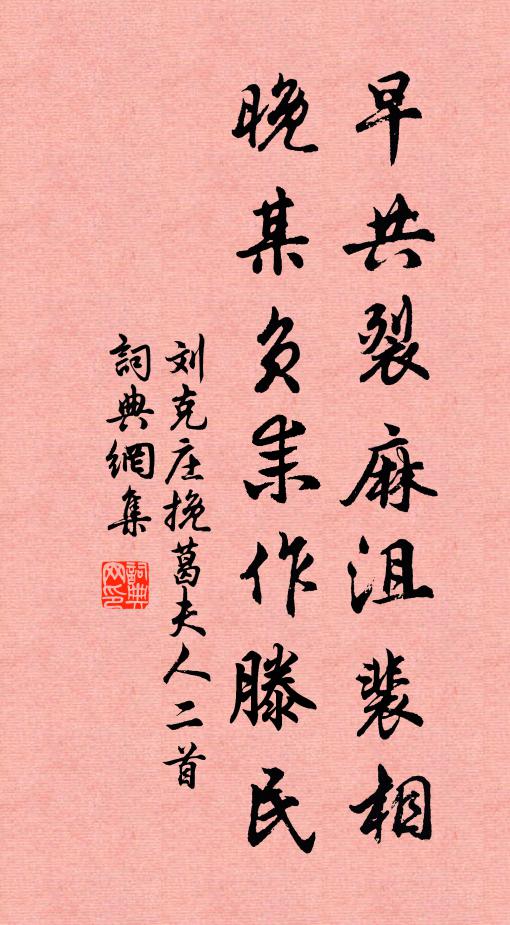 早共裂麻沮裴相
晚某负耒作滕民
刘克庄挽葛夫人二首
詞典網集
詞典
网印